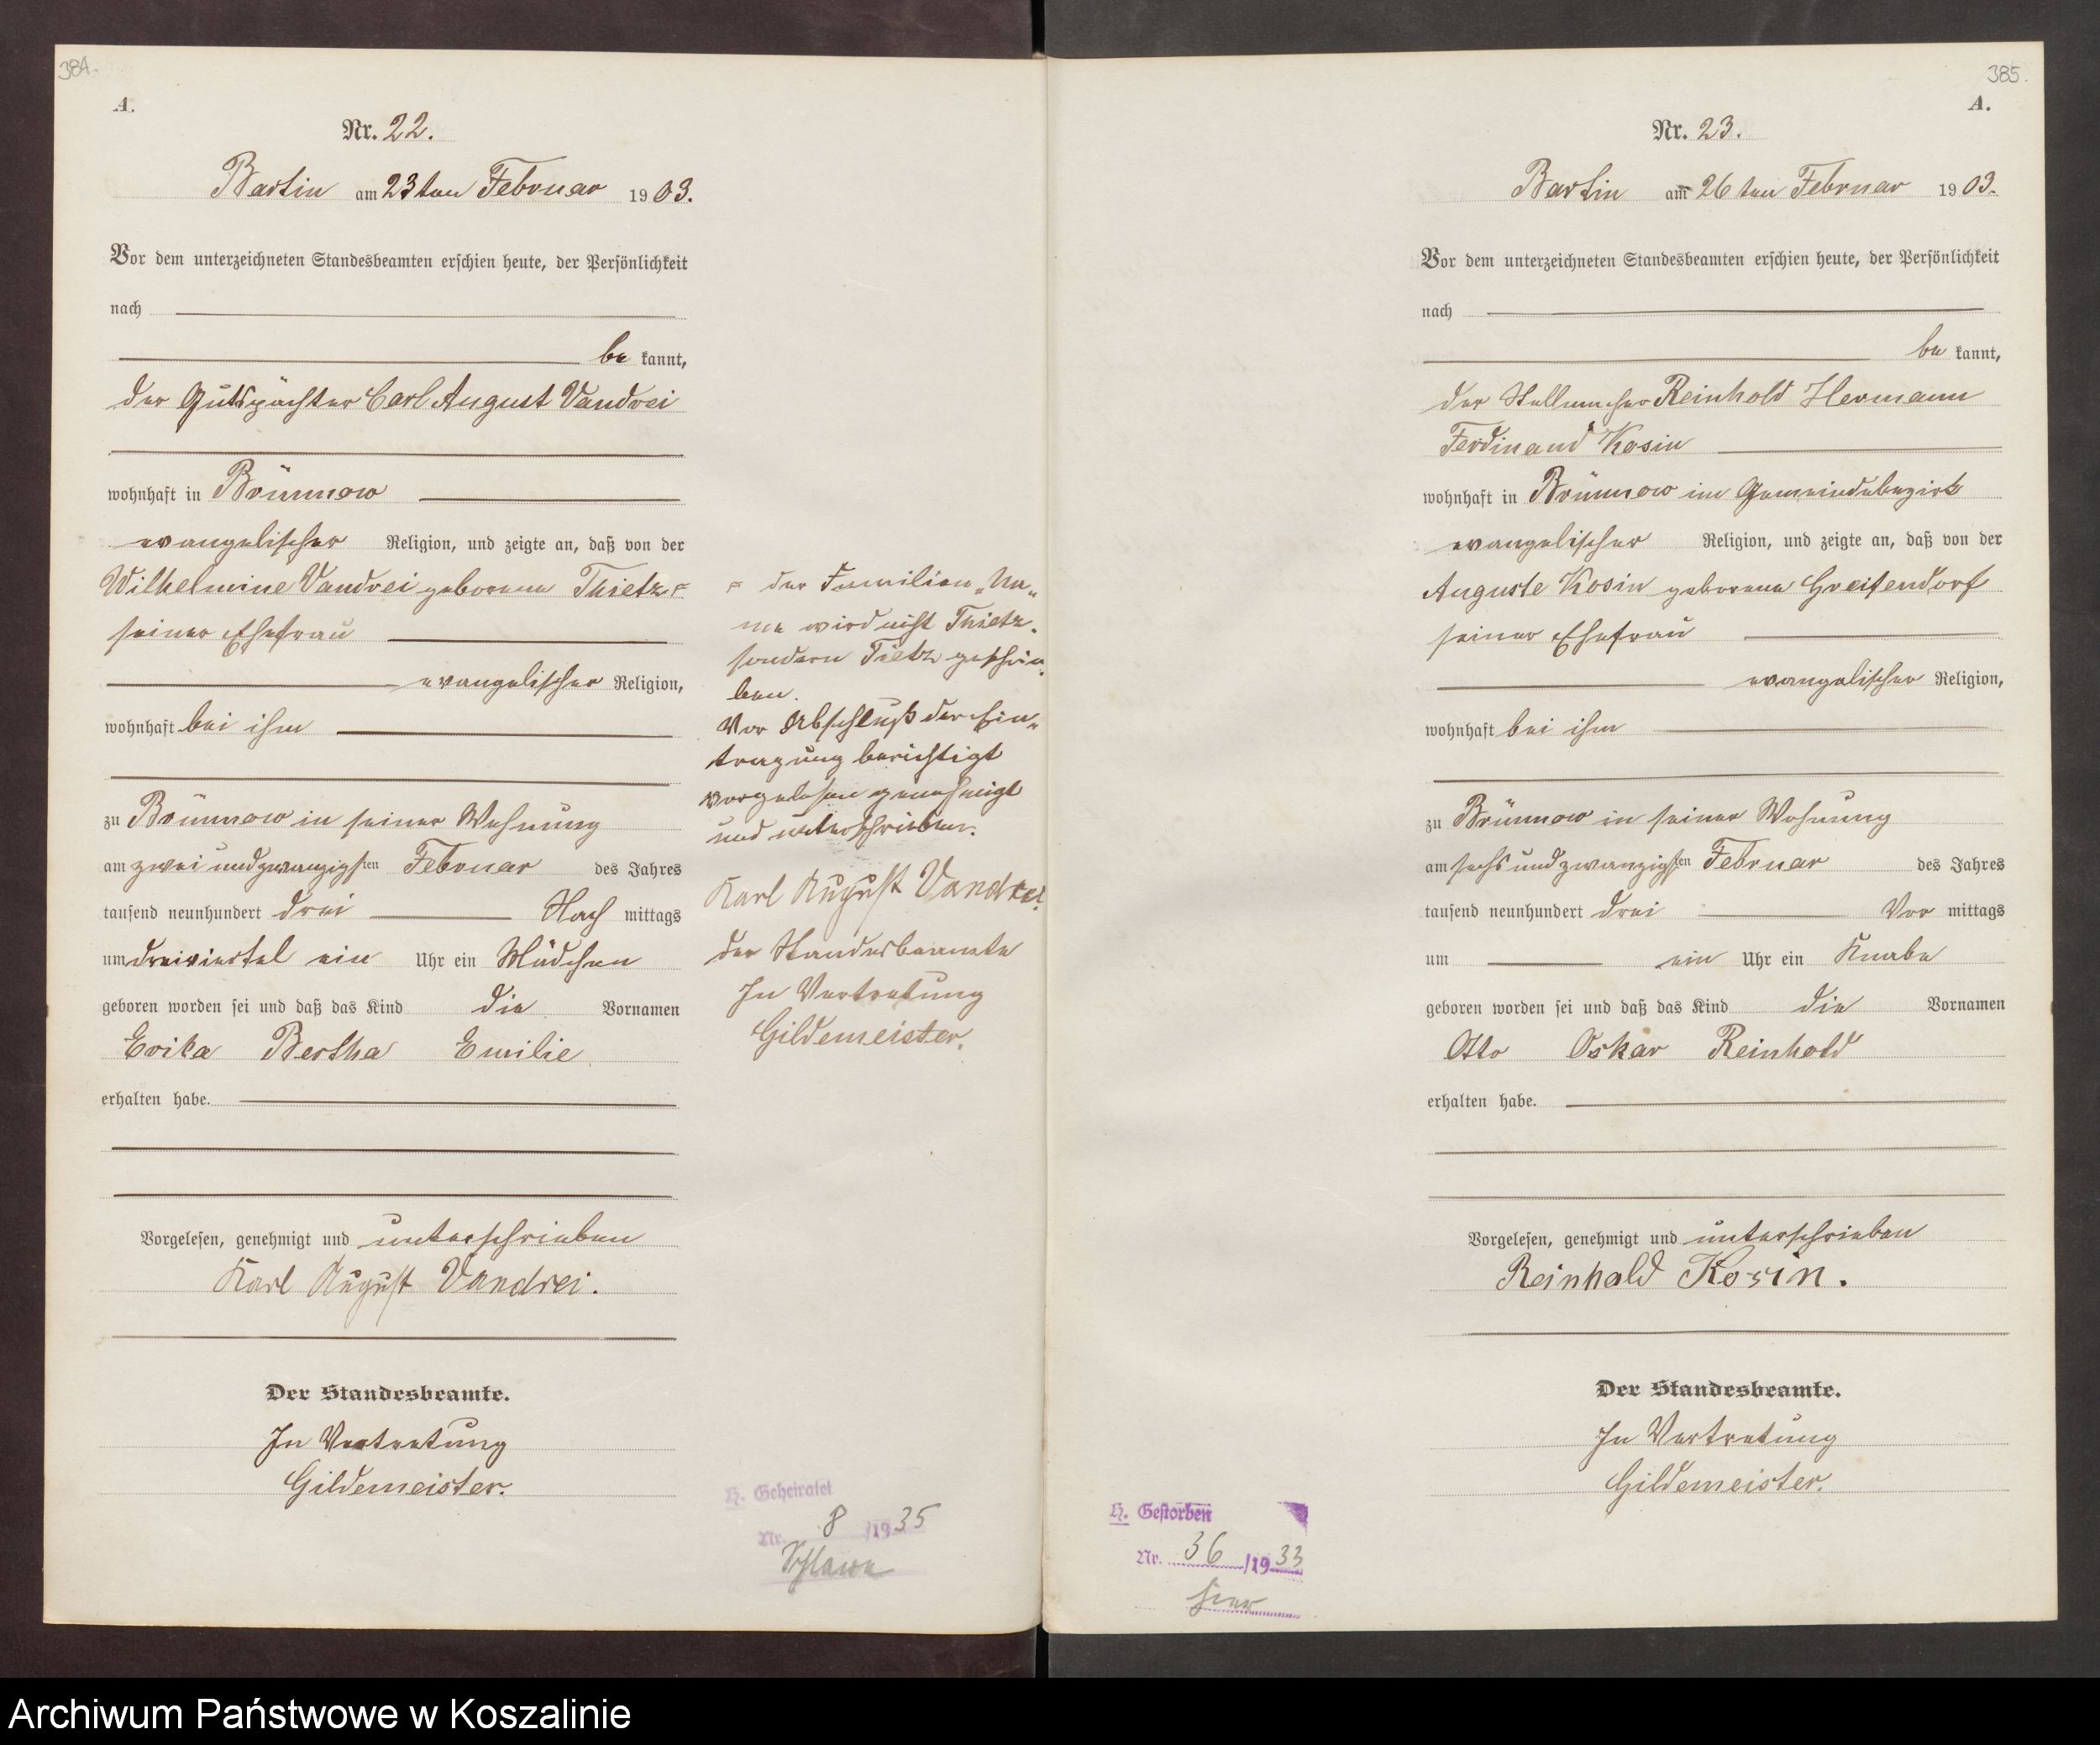 384.
A.
Nr. 22.
Bartin am 23ten Februar 1903.
Vor dem unterzeichneten Standesbeamten erschien heute, der Persönlichkeit
nach
be kannt,
der Gutspächter Carl August Vandrei
wohnhaft in Brünnow
evangelischer Religion, und zeigte an, daß von der
Wilhelmine Vandrei geborene Thietz
seiner Ehefrau
evangelischer Religion,
wohnhaft bei ihm
zu Brünnow in seiner Wohnung
am zwei und zwanzigsten Februar des Jahres
tausend neunhundert drei Nach mittags
um dreiviertel ein Uhr ein Mädchen
geboren worden sei und daß das Kind die Vornamen
Erika Bertha Emilie
erhalten habe.
Vorgelesen, genehmigt und unterschrieben
Karl August Vandrei.
Der Standesbeamte.
In Vertretung
Gildemeister.
= der Familien „Na„
me wird nicht Thietz.
sondern Tietz geschrie„
ben.
Vor Abschluß der Ein„
tragung berichtigt
vorgelesen genehmigt
und unterschrieben.
Karl August Vandrei.
der Standesbeamte
In Vertretung
Gildemeister.
H. Geheiratet
Nr. 8 /1935
Schlawe
385.
A.
Nr. 23.
Bartin am 26ten Februar 1903.
Vor dem unterzeichneten Standesbeamten erschien heute, der Persönlichkeit
nach
be kannt,
der Stellmacher Reinhold Hermann
Ferdinand Kosin
wohnhaft in Brünnow im Gemeindebezirk
evangelischer Religion, und zeigte an, daß von der
Auguste Kosin geborene Greifendorf
seiner Ehefrau
evangelischer Religion,
wohnhaft bei ihm
zu Brünnow in seiner Wohnung
am sechs und zwanzigsten Februar des Jahres
tausend neunhundert drei Vor mittags
um ein Uhr ein Knabe
geboren worden sei und daß das Kind die Vornamen
Otto Oskar Reinhold
erhalten habe.
Vorgelesen, genehmigt und unterschrieben
Reinhold Kosin.
Der Standesbeamte.
In Vertretung
Gildemeister.
H. Gestorben
Nr. 36 /1933
hier
Archiwum Państwowe w Koszalinie